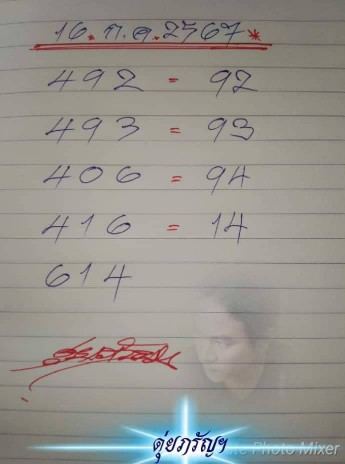 16. ก.ค. 2567*
492 = 92
493 = 93
406 = 94
416 = 14
614
ดุ่ยภรัญฯ
Photo Mixer